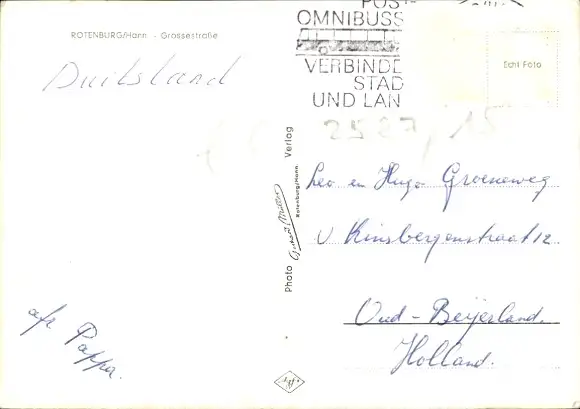 POST-
OMNIBUSS
VERBINDE
STAD
UND LAN
ROTENBURG/Hann. - Grossestraße
Duitsland
Echt Foto
2527 15
Leo en Hugo Groeneweg
v Kinsbergenstraat 12
Oud-Beijerland.
Holland.
afz Pappa.
Photo
Verlag
Rotenburg/Hann.